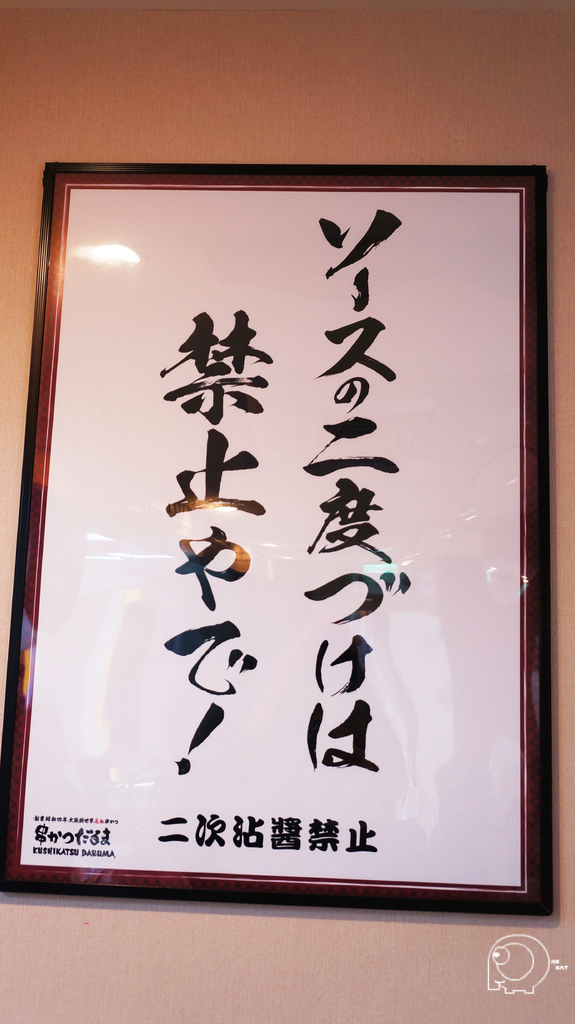 ソースの二度づけは
禁止やで！
二次沾醬禁止
創業昭和四年大阪新世界元祖串かつ
串かつだるま
KUSHIKATSU DARUMA